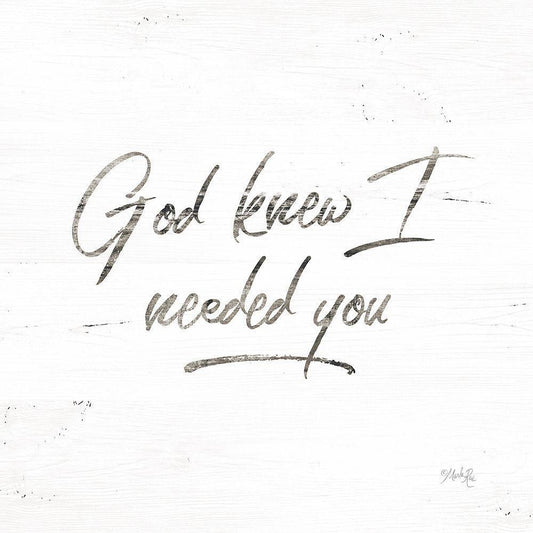 God knew I
needed you
©Marla Rae